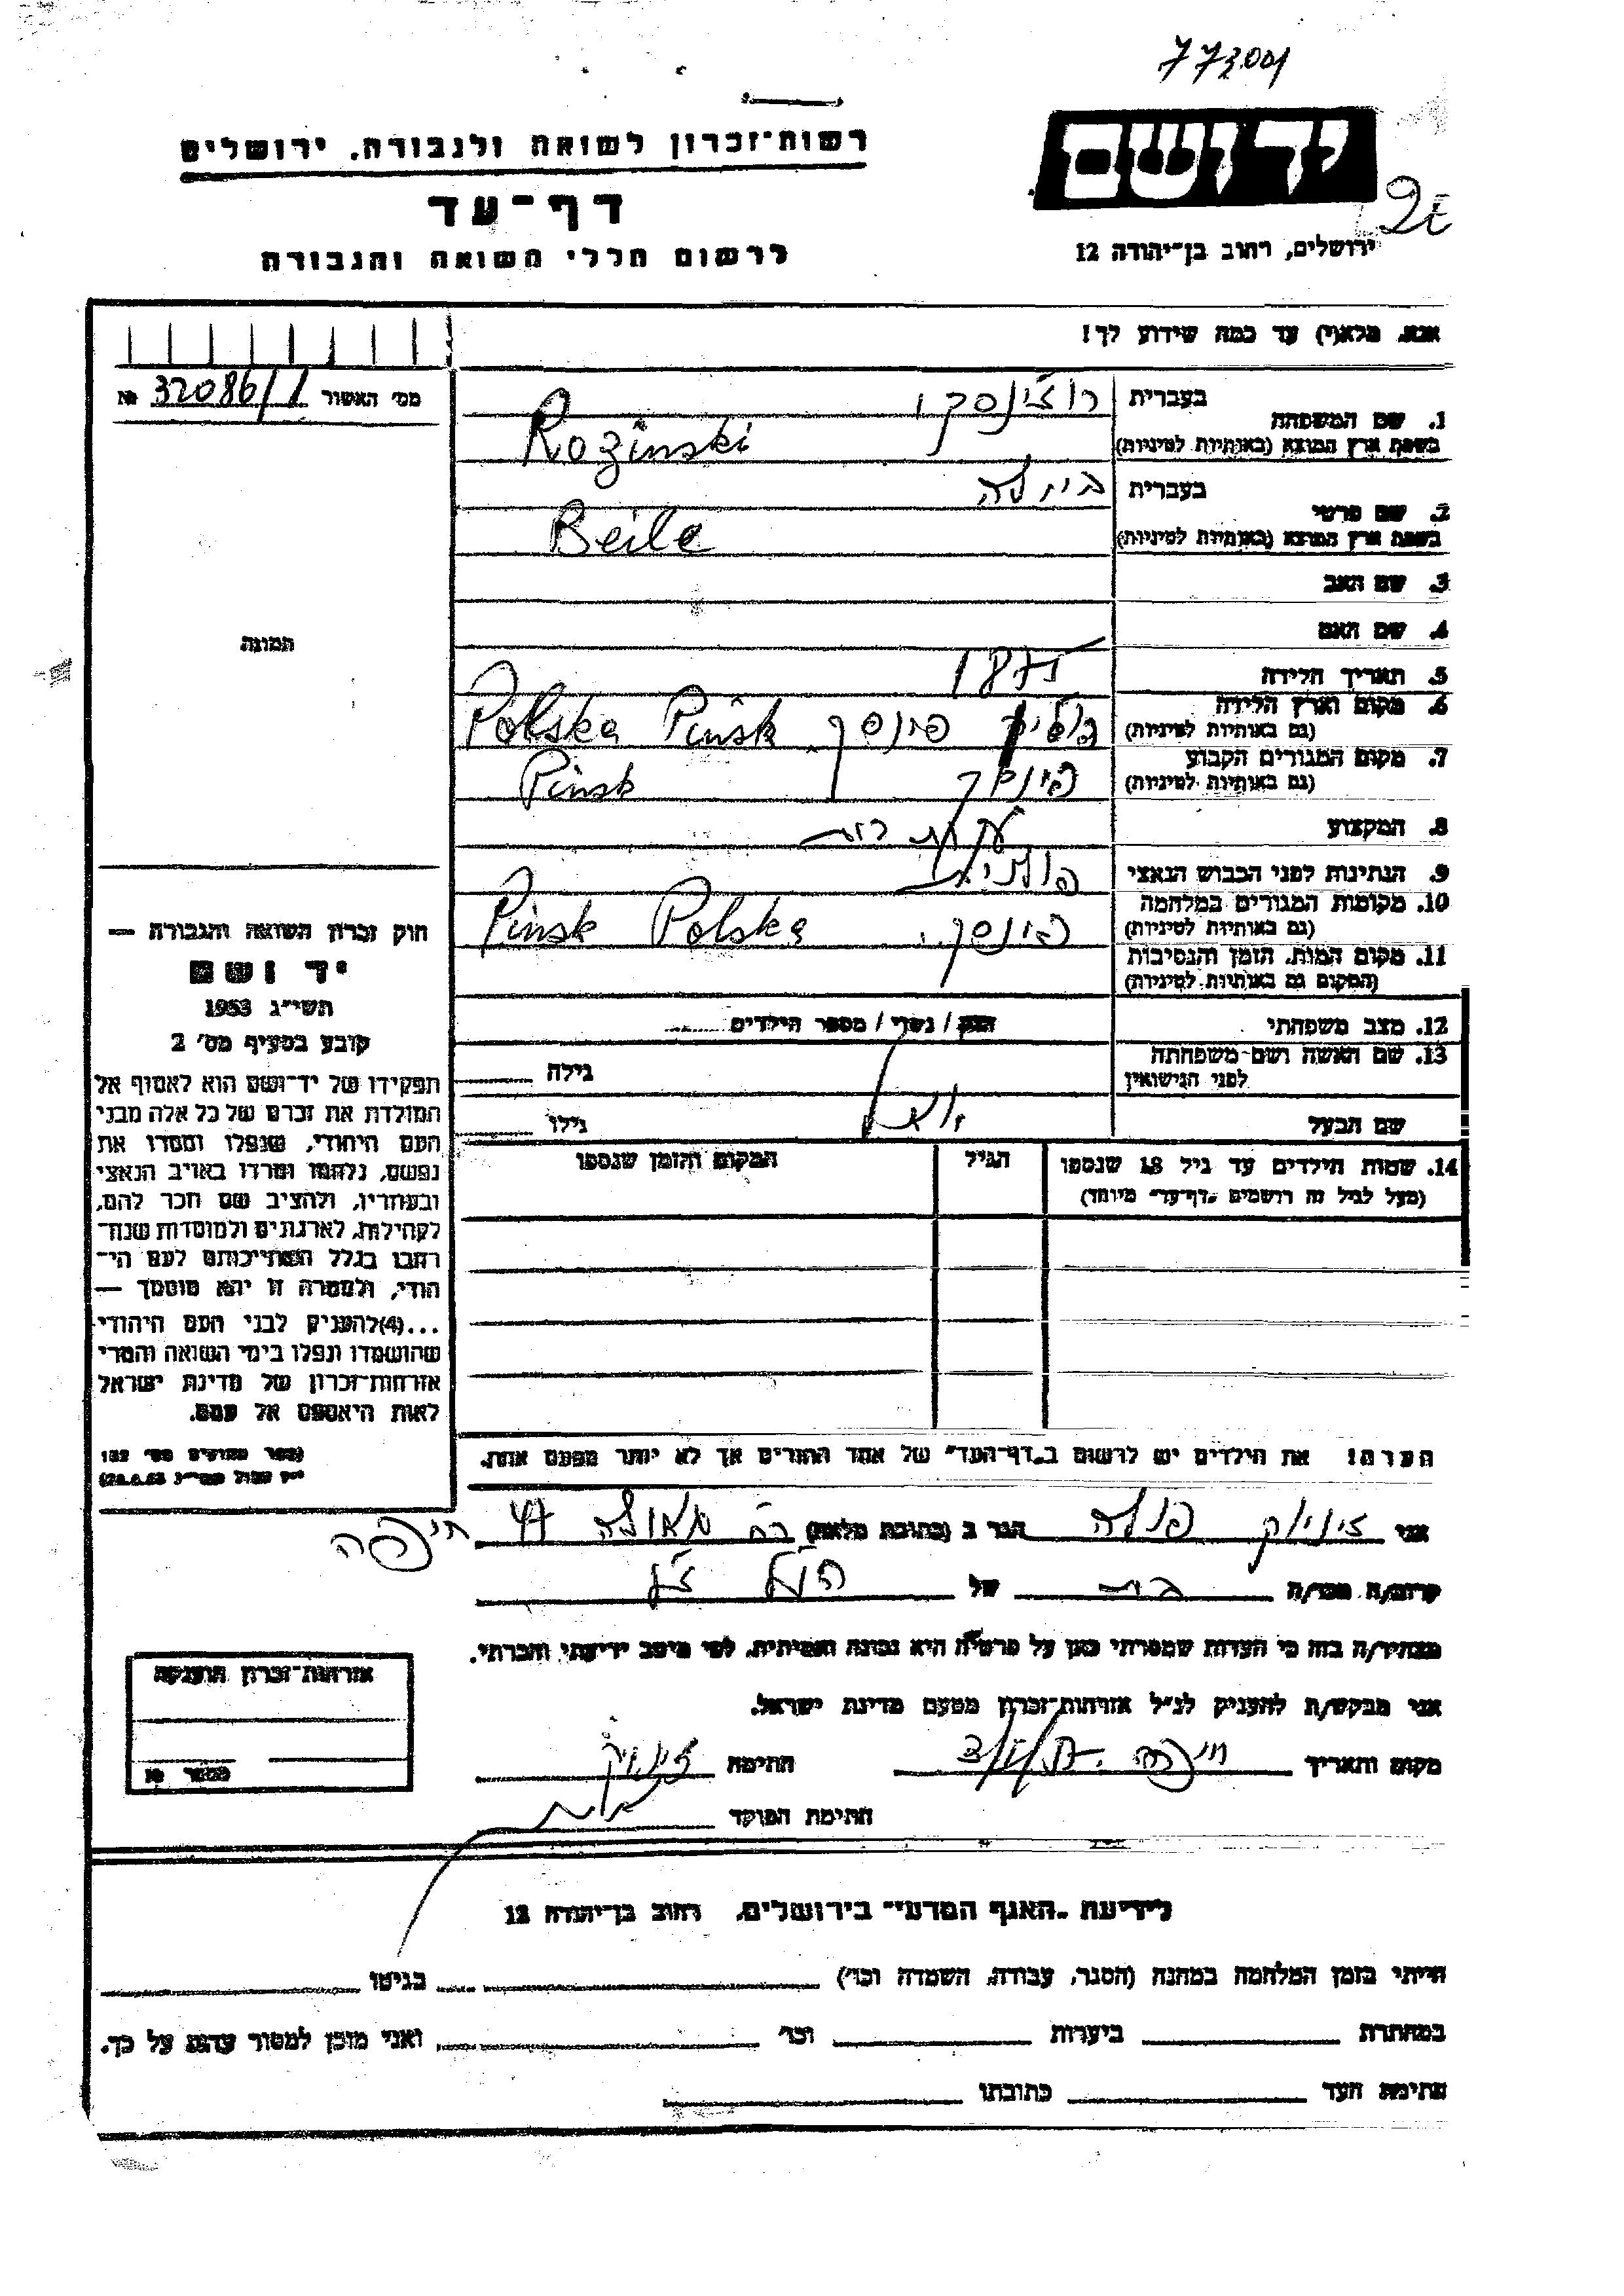 773001
רשות־זכרון לשואה ולגבורה, ירושלים
דף־עד
לרשום חללי השואה והגבורה
יד ושם
ירושלים, רחוב בן־יהודה 12
אנא, מלא(י) עד כמה שידוע לך!
מס׳ האשור 32086/1 №
1. שם המשפחה
בעברית רוז׳ינסקי
בשפת ארץ המוצא (באותיות לטיניות) Rozinski
2. שם פרטי
בעברית ביילה
בשפת ארץ המוצא (באותיות לטיניות) Beile
3. שם האב
4. שם האם
5. תאריך הלידה 1875
6. מקום וארץ הלידה (גם באותיות לטיניות) פולין פינסק Polska Pińsk
7. מקום המגורים הקבוע (גם באותיות לטיניות) פינסק Pinsk
8. המקצוע עקרת בית
9. הנתינות לפני הכבוש הנאצי פולנית
10. מקומות המגורים במלחמה (גם באותיות לטיניות) פינסק Pinsk Polska
11. מקום המות, הזמן והנסיבות (המקום גם באותיות לטיניות)
12. מצב משפחתי רווק / נשוי / מספר הילדים
13. שם האשה ושם משפחתה לפני הנישואין גילה
שם הבעל גילו
14. שמות הילדים עד גיל 18 שנספו (מעל לגיל זה רושמים „דף־עד״ מיוחד)
הגיל
המקום והזמן שנספו
התמונה
חוק זכרון השואה והגבורה —
יד ושם
תשי״ג 1953
קובע בסעיף מס׳ 2
תפקידו של יד־ושם הוא לאסוף אל
המולדת את זכרם של כל אלה מבני
העם היהודי, שנפלו ומסרו את
נפשם, נלחמו ומרדו באויב הנאצי
ובעוזריו, ולהציב שם וזכר להם,
לקהילות, לארגונים ולמוסדות שנח־
רבו בגלל השתייכותם לעם הי־
הודי, ולמטרה זו יהא מוסמך —
...(4) להעניק לבני העם היהודי
שהושמדו ונפלו בימי השואה והמרי
אזרחות־זכרון של מדינת ישראל
לאות היאספם אל עמם.
(ספר החוקים מס׳ 132
הערה! את הילדים יש לרשום ב„דף־העד״ של אחד ההורים אך לא יותר מפעם אחת.
אני פנלה הגר ב (כתובת מלאה) רח׳ גאולה 47 חיפה
קרוב/ה מכר/ה בת של
מצהיר/ה בזה כי העדות שמסרתי כאן על פרטיה היא נכונה ואמיתית, לפי מיטב ידיעתי והכרתי.
אני מבקש/ת להעניק לנ״ל אזרחות־זכרון מטעם מדינת ישראל.
מקום ותאריך חיפה חתימה
חתימת הפוקד
אזרחות־זכרון הוענקה
מספר №
לידיעת „האגף המדעי״ בירושלים, רחוב בן־יהודה 12
הייתי בזמן המלחמה במחנה (הסגר, עבודה, השמדה וכו׳) בגיטו
במחתרת ביערות וכו׳ ואני מוכן למסור עדות על כך.
חתימת העד כתובתו